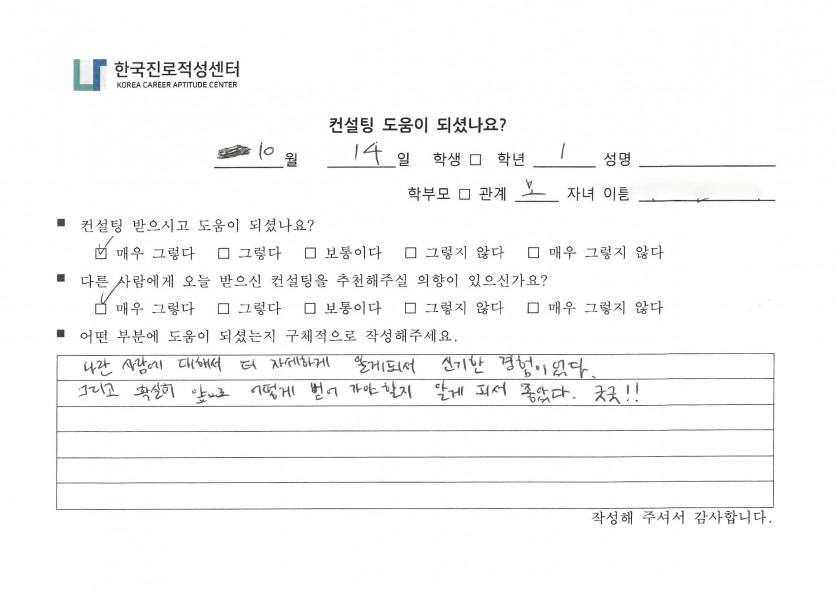 한국진로적성센터
KOREA CAREER APTITUDE CENTER
컨설팅 도움이 되셨나요?
10 월 14 일 학생 □ 학년 1 성명
학부모 □ 관계 모 자녀 이름
■ 컨설팅 받으시고 도움이 되셨나요?
☑ 매우 그렇다 □ 그렇다 □ 보통이다 □ 그렇지 않다 □ 매우 그렇지 않다
■ 다른 사람에게 오늘 받으신 컨설팅을 추천해주실 의향이 있으신가요?
☑ 매우 그렇다 □ 그렇다 □ 보통이다 □ 그렇지 않다 □ 매우 그렇지 않다
■ 어떤 부분에 도움이 되셨는지 구체적으로 작성해주세요.
나란 사람에 대해서 더 자세하게 알게되서 신기한 경험이었다.
그리고 확실히 앞으로 어떻게 가야할지 알게 되서 좋았다. 굿굿!!
작성해 주셔서 감사합니다.